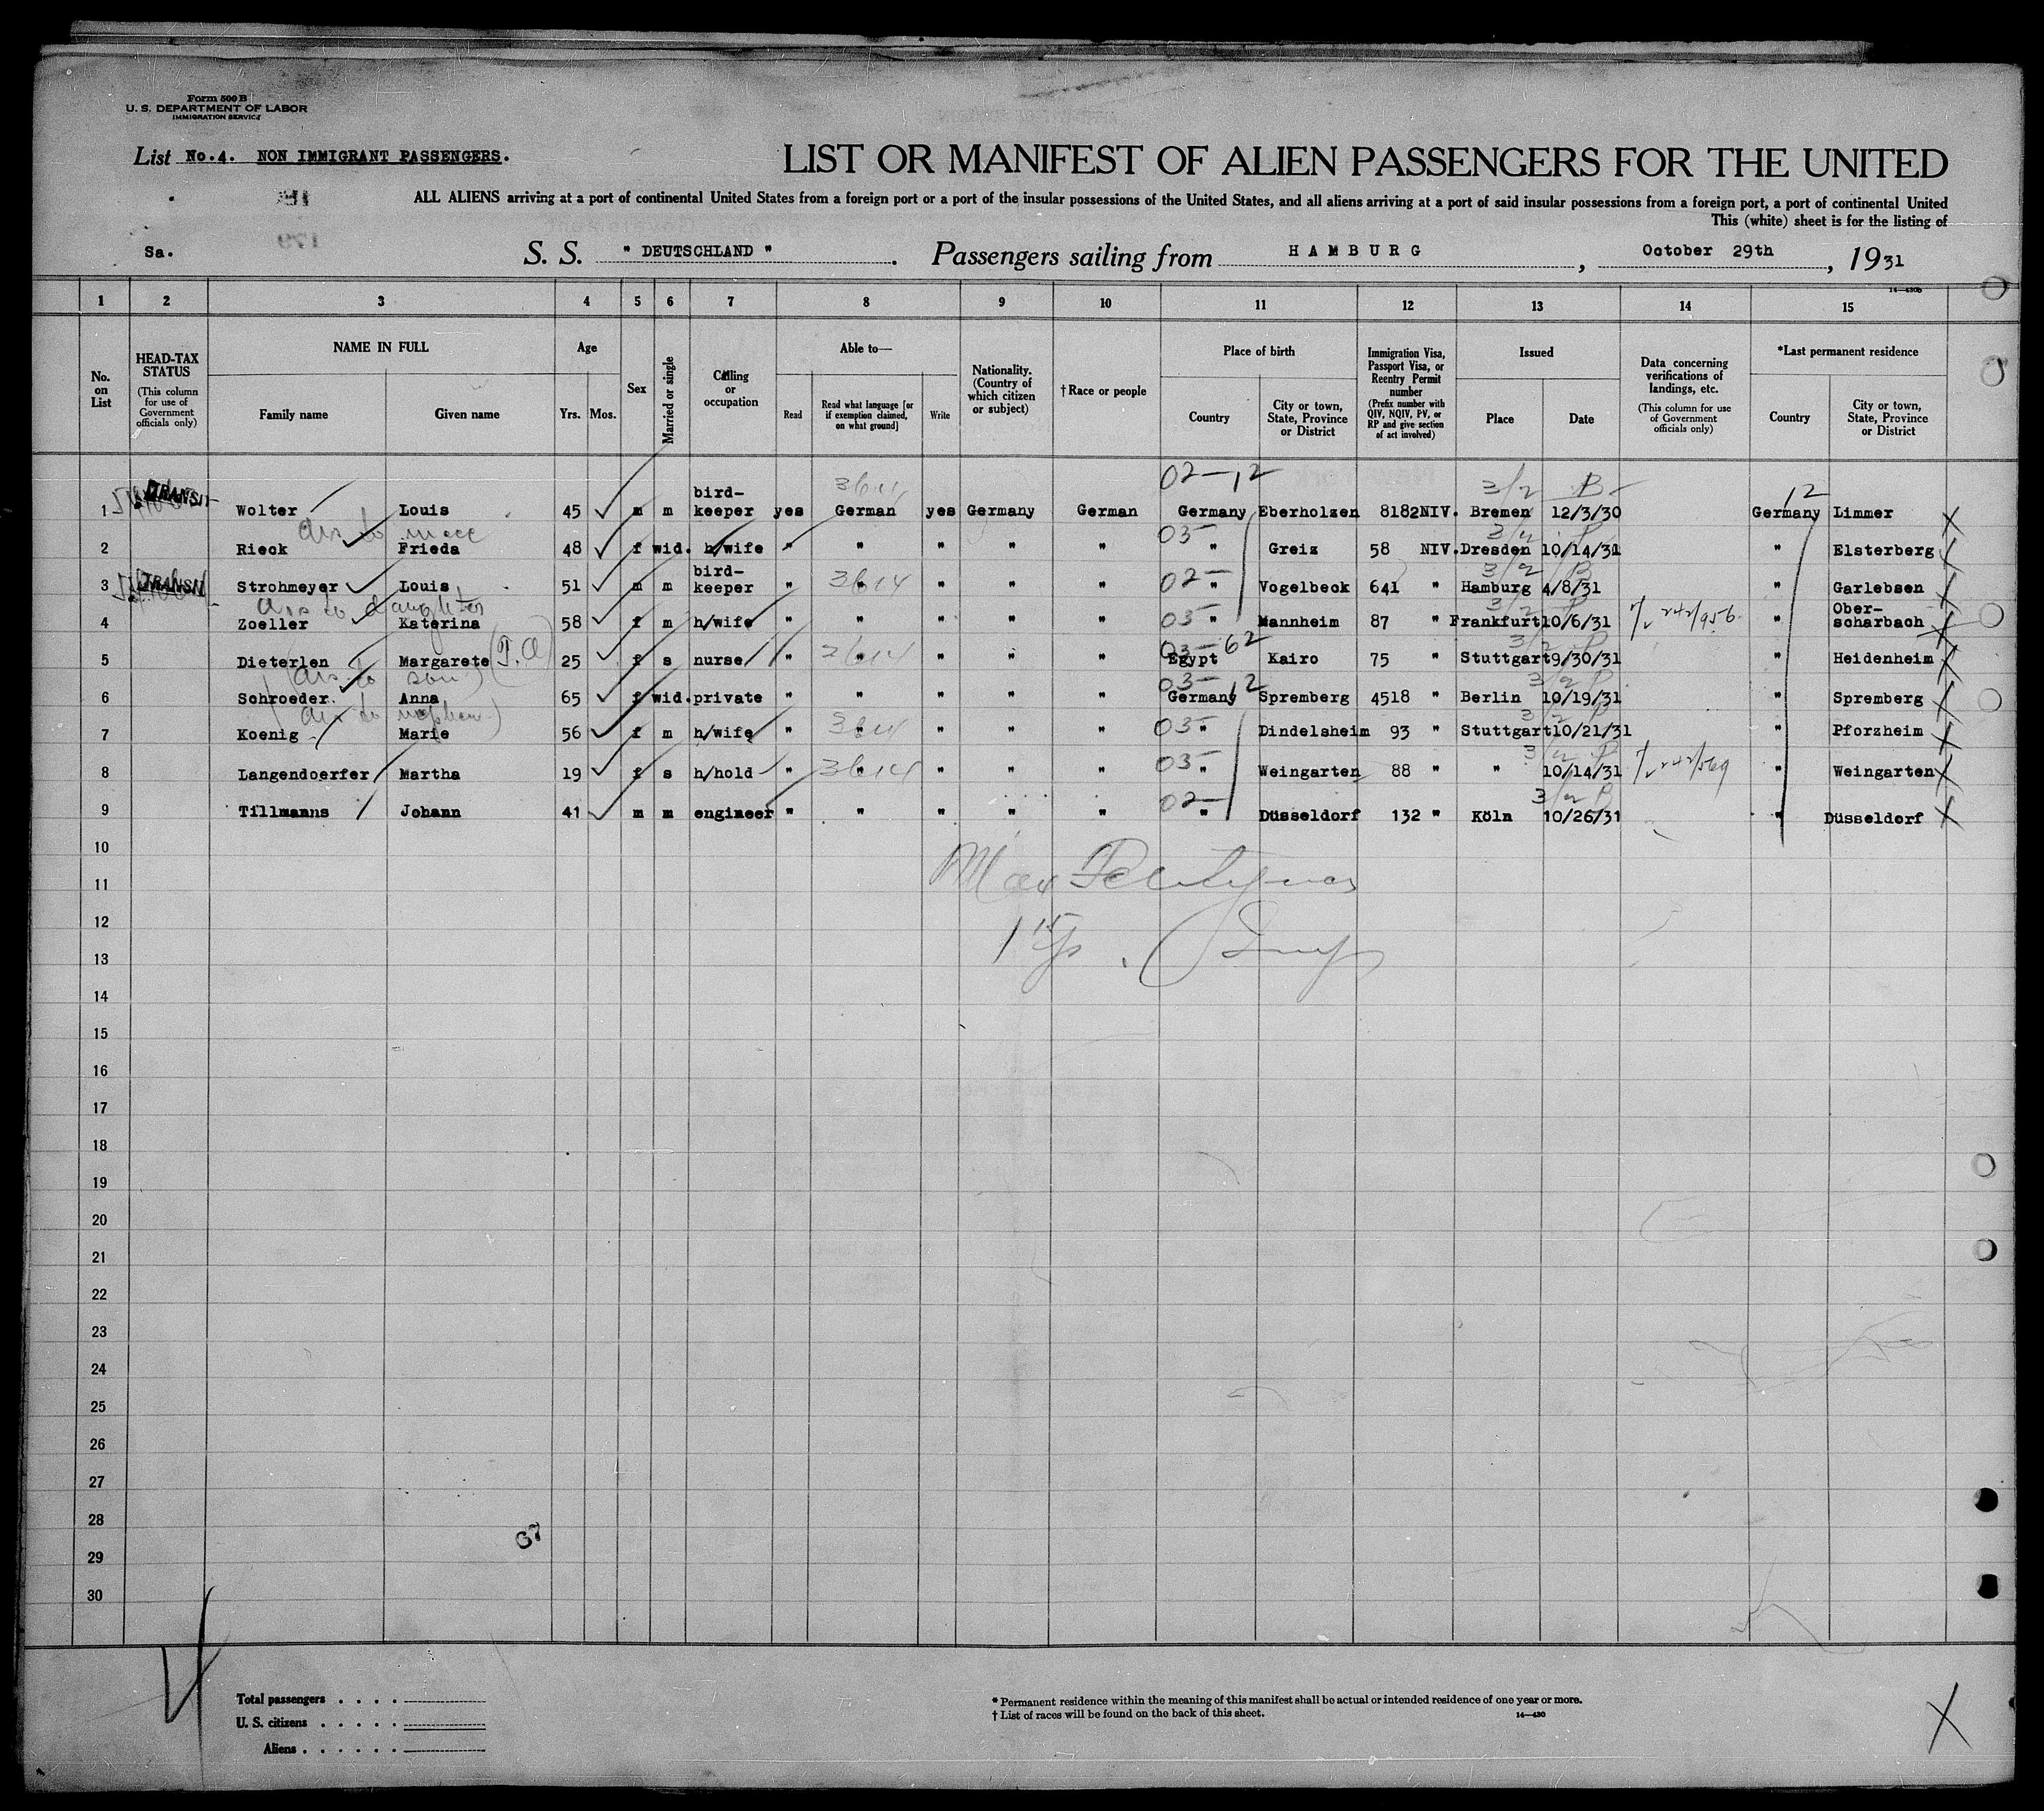 Form 500 B
U. S. DEPARTMENT OF LABOR
IMMIGRATION SERVICE
List No.4. NON IMMIGRANT PASSENGERS.
LIST OR MANIFEST OF ALIEN PASSENGERS FOR THE UNITED
ALL ALIENS arriving at a port of continental United States from a foreign port or a port of the insular possessions of the United States, and all aliens arriving at a port of said insular possessions from a foreign port, a port of continental United
This (white) sheet is for the listing of
Sa. S. S. " DEUTSCHLAND ". Passengers sailing from HAMBURG, October 29th, 1931
14—430b
1 2 3 4 5 6 7 8 9 10 11 12 13 14 15
No. on List
HEAD-TAX STATUS (This column for use of Government officials only)
NAME IN FULL
Family name Given name
Age
Yrs. Mos.
Sex
Married or single
Calling or occupation
Able to—
Read Read what language [or if exemption claimed, on what ground] Write
Nationality. (Country of which citizen or subject)
†Race or people
Place of birth
Country City or town, State, Province or District
Immigration Visa, Passport Visa, or Reentry Permit number (Prefix number with QIV, NQIV, PV, or RP and give section of act involved)
Issued
Place Date
Data concerning verifications of landings, etc. (This column for use of Government officials only)
*Last permanent residence
Country City or town, State, Province or District
02-12 3/2 B 12
1 TRANSIT Wolter Louis 45 m m bird-keeper yes German yes Germany German Germany Eberholzen 8182 NIV. Bremen 12/3/30 Germany Limmer
03
2 Rieck Frieda 48 f wid. h/wife " " " " " " Greiz 58 NIV. Dresden 10/14/31 " Elsterberg
3614 02 3/2 B
3 Strohmeyer Louis 51 m m bird-keeper " " " " " " Vogelbeck 641 " Hamburg 4/8/31 " Garlebsen
daughter 03
4 Zoeller Katerina 58 f m h/wife " " " " " " Mannheim 87 " Frankfurt 10/6/31 " Ober-scharbach
3614 03-62
5 Dieterlen Margarete 25 f s nurse " " " " " Egypt Kairo 75 " Stuttgart 9/30/31 " Heidenheim
son 03 12
6 Schroeder. Anna 65 f wid. private " " " " " Germany Spremberg 4518 " Berlin 10/19/31 " Spremberg
nephew 3614 03
7 Koenig Marie 56 f m h/wife " " " " " " Dindelsheim 93 " Stuttgart 10/21/31 " Pforzheim
3614 03
8 Langendoerfer Martha 19 f s h/hold " " " " " " Weingarten 88 " " 10/14/31 " Weingarten
02 3/2 B
9 Tillmanns Johann 41 m m engineer " " " " " " Düsseldorf 132 " Köln 10/26/31 " Düsseldorf
10
11
12
13
14
15
16
17
18
19
20
21
22
23
24
25
26
27
28
29
30
Total passengers . . . .
U. S. citizens . . . . .
Aliens . . . . . .
* Permanent residence within the meaning of this manifest shall be actual or intended residence of one year or more.
† List of races will be found on the back of this sheet.
14—430